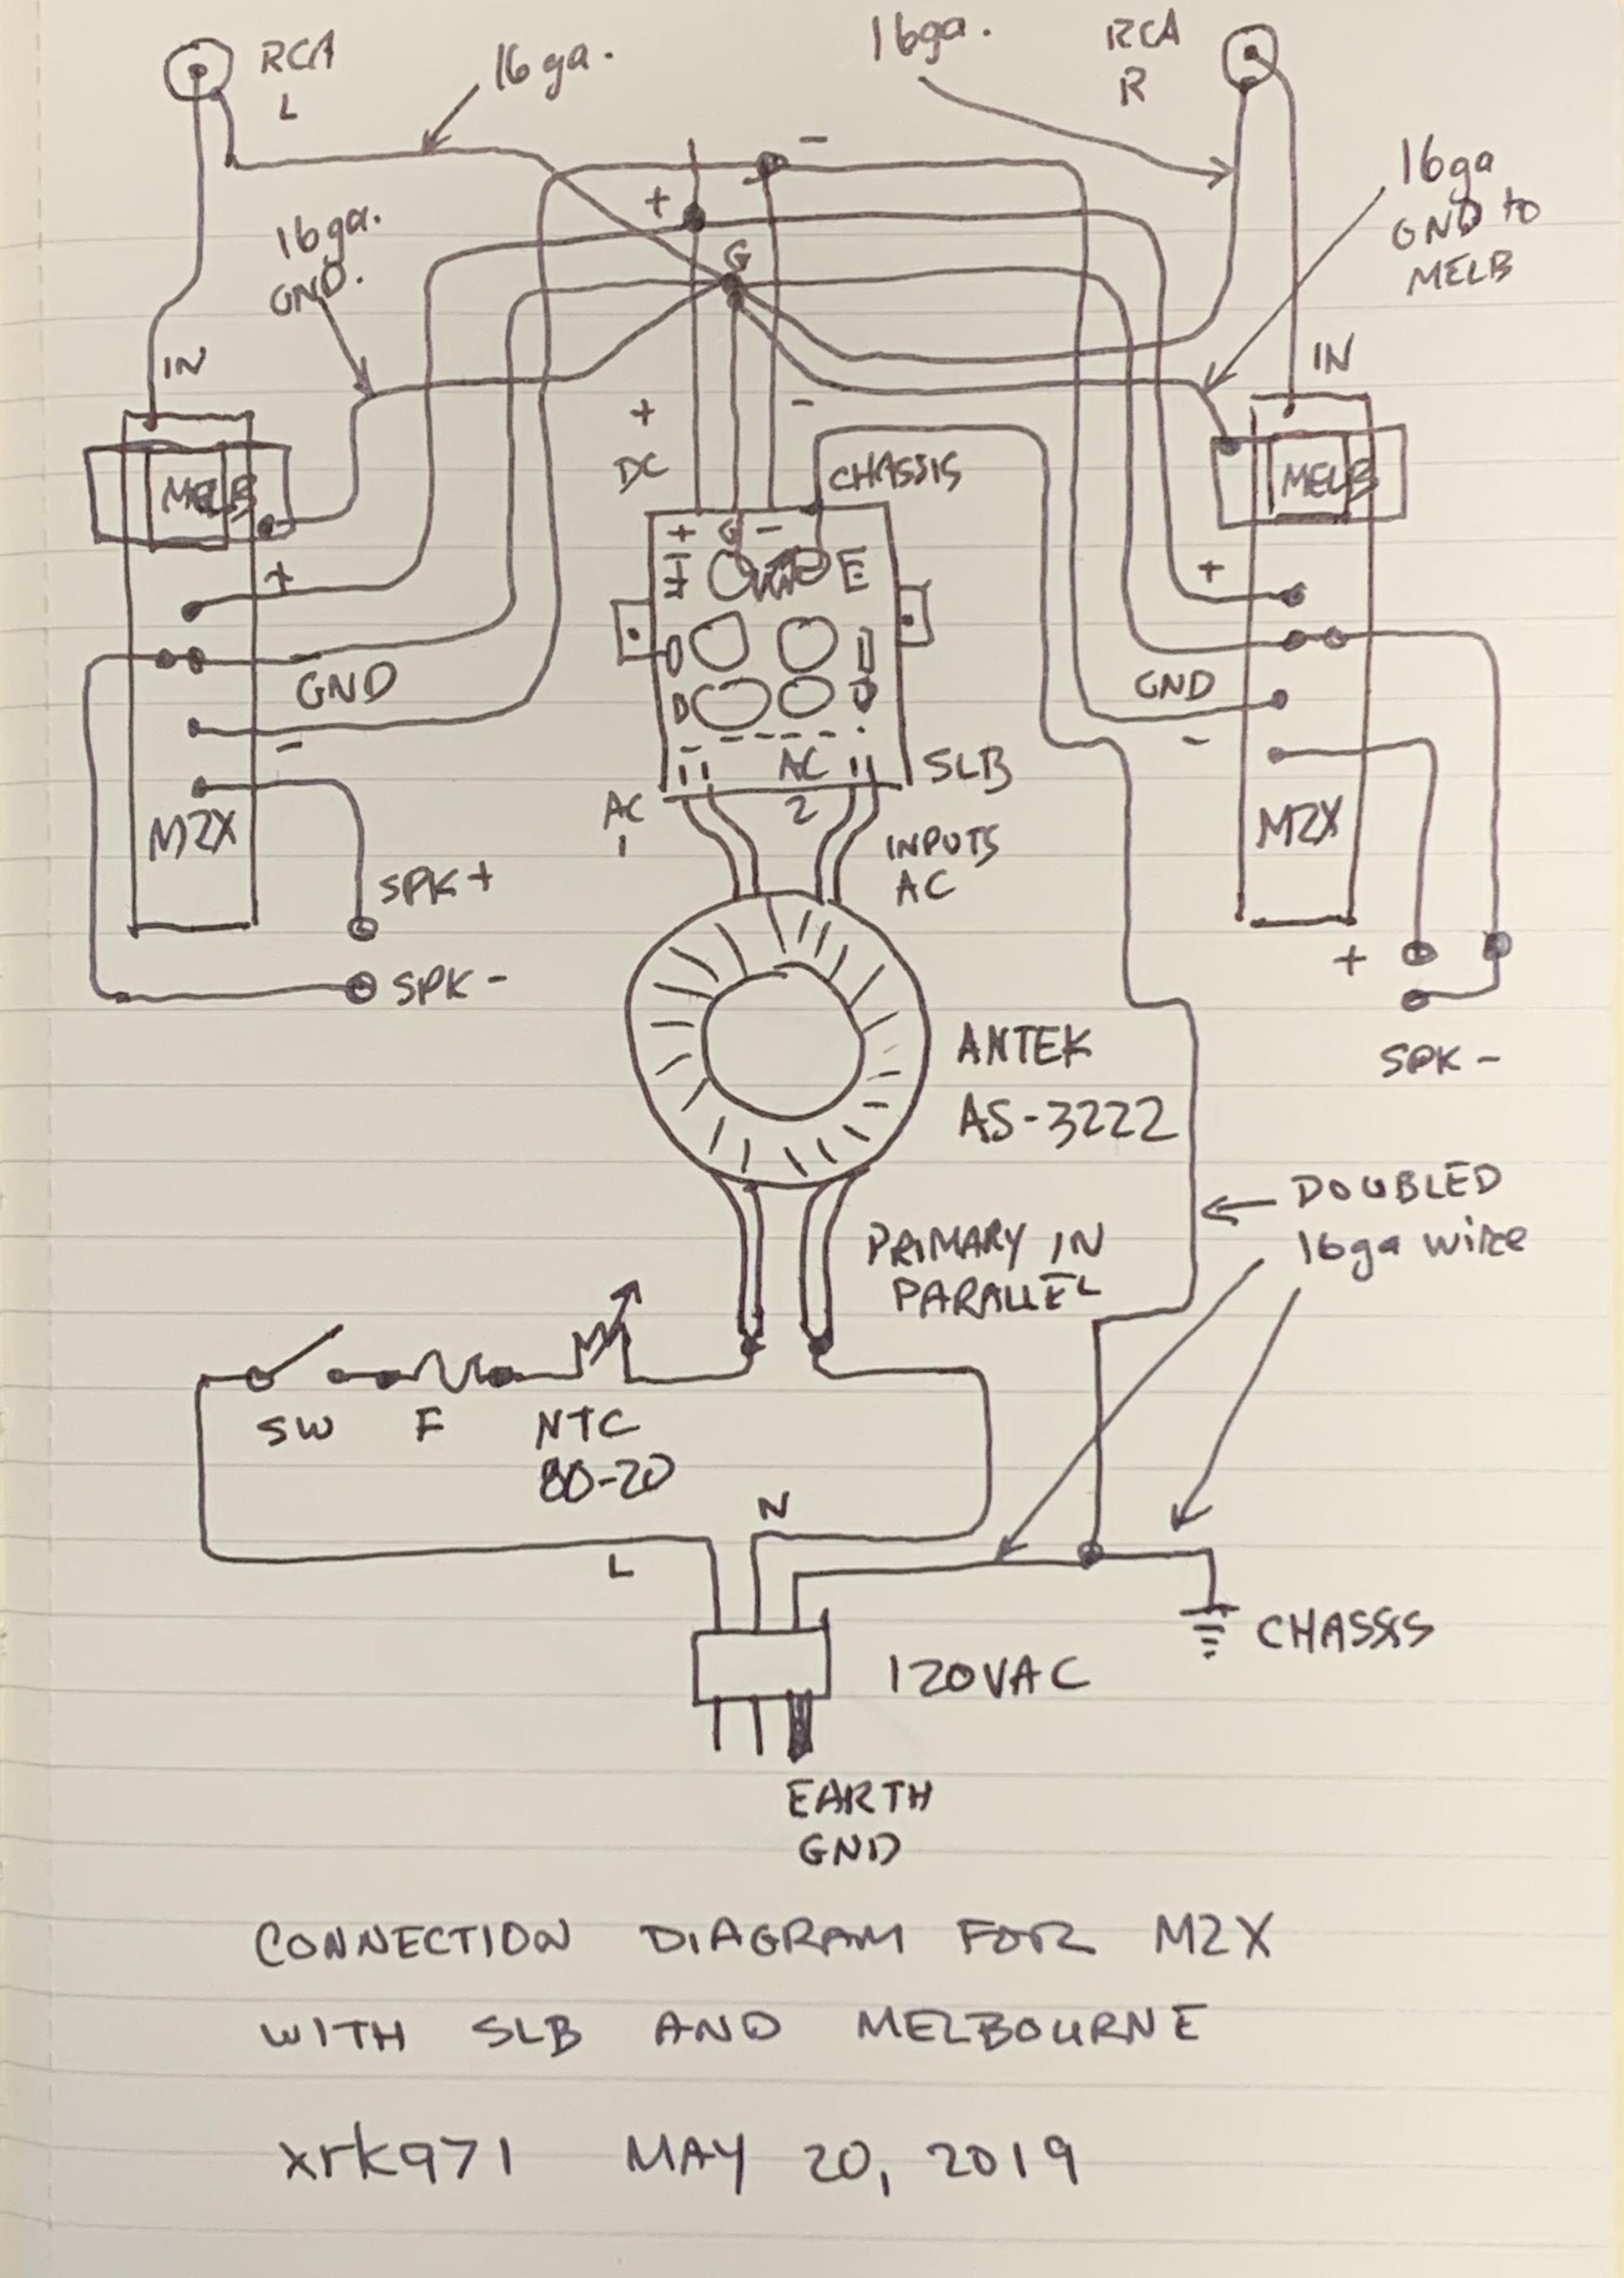 RCA
L
16 ga.
16ga.
RCA
R
16ga
GND to
MELB
16ga.
GND.
+
-
G
IN
IN
+
DC
-
CHASSIS
MELB
MELB
+ G -
E
+
+
GND
GND
-
-
AC
SLB
AC
1
2
INPUTS
AC
M2X
M2X
SPK +
SPK -
+
SPK -
ANTEK
AS-3222
DOUBLED
16ga wire
PRIMARY IN
PARALLEL
SW
F
NTC
80-20
N
L
CHASSIS
120VAC
EARTH
GND
CONNECTION DIAGRAM FOR M2X
WITH SLB AND MELBOURNE
xrk971 MAY 20, 2019